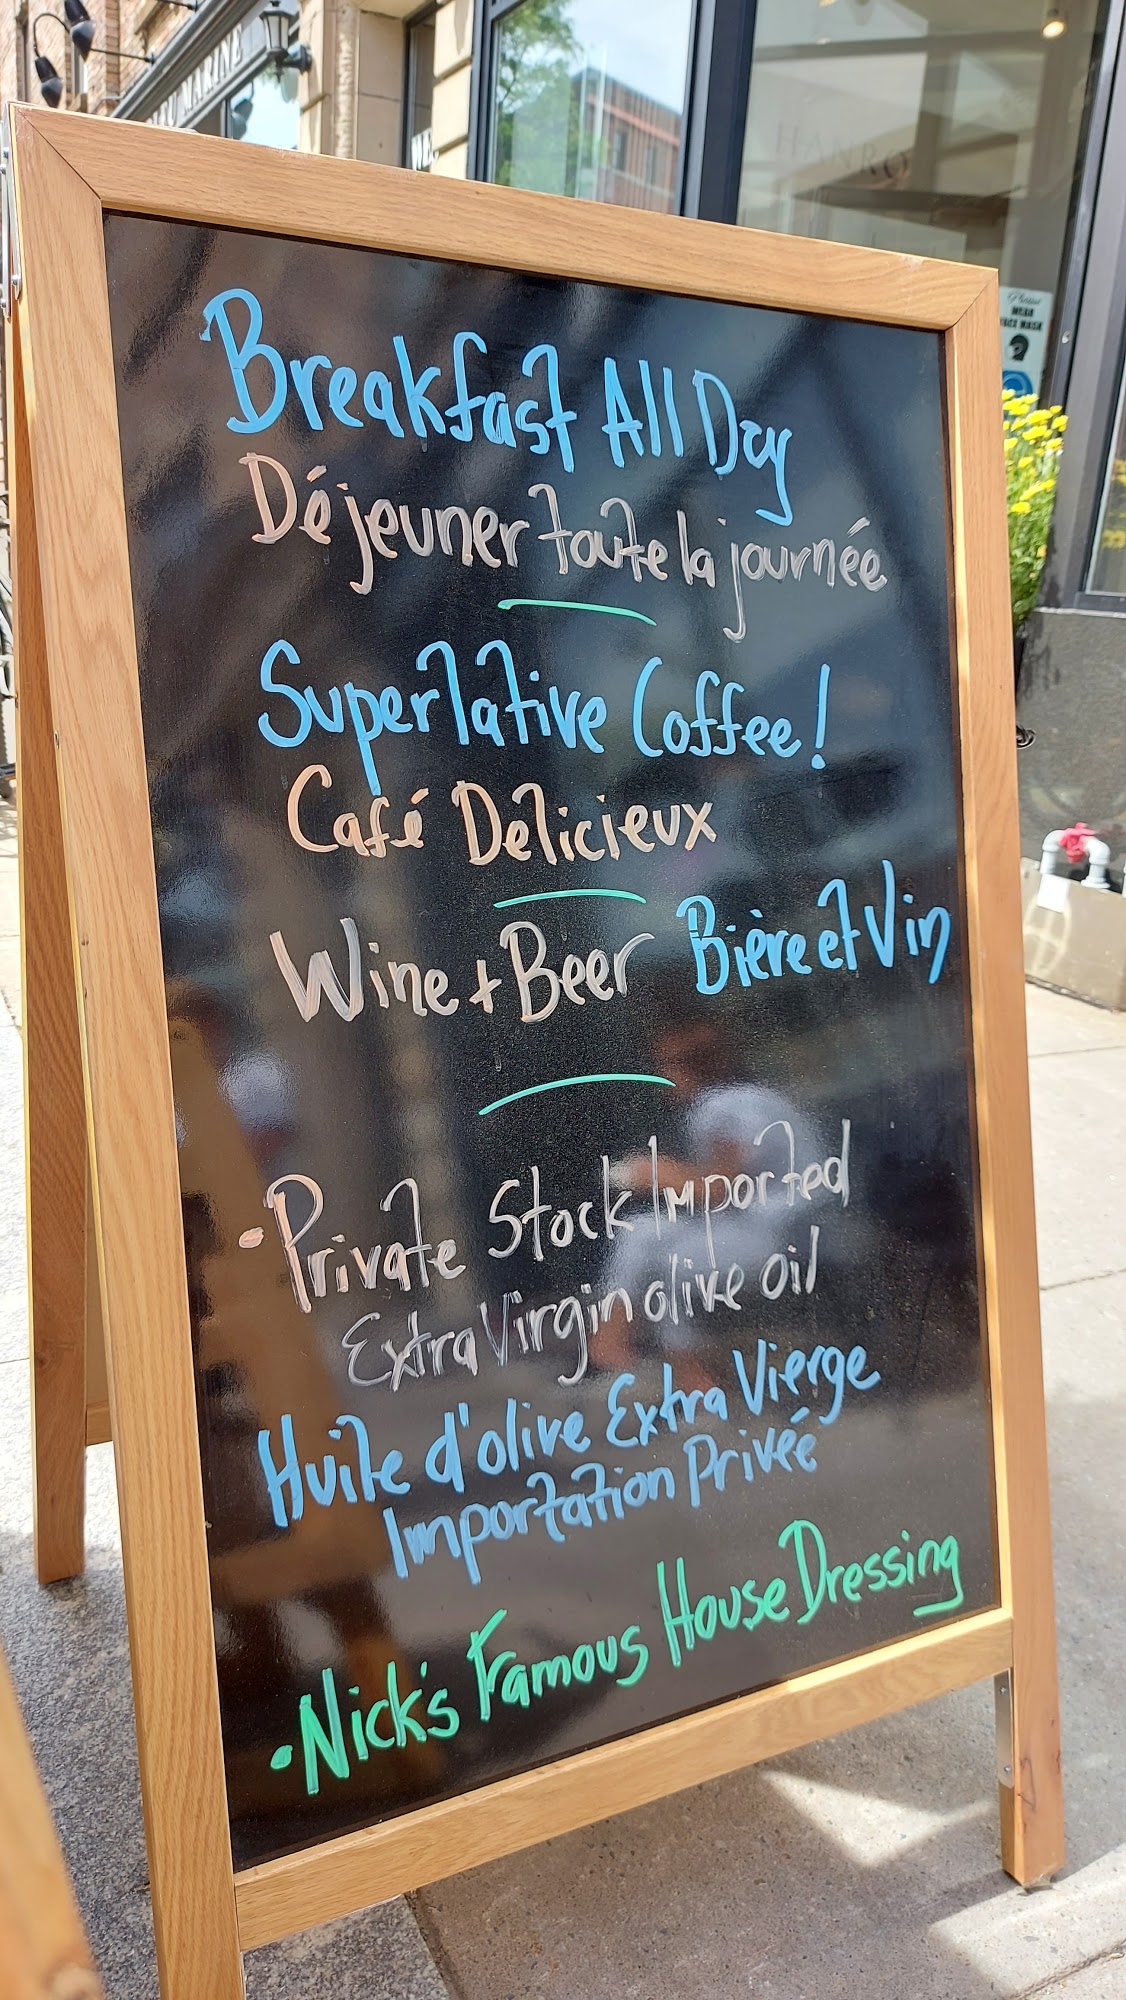 Breakfast All Day
Déjeuner toute la journée
Superlative Coffee!
Café Delicieux
Wine + Beer Bière et Vin
• Private Stock Imported
Extra Virgin olive oil
Huile d'olive Extra Vierge
Importation Privéé
• Nick's Famous House Dressing
HANRO
Please
WEAR
FACE MASK
MARINE